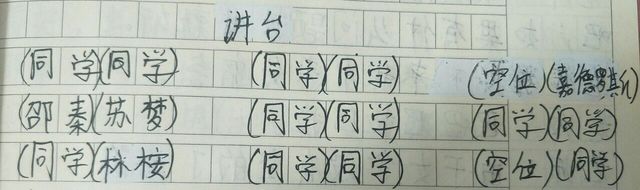 讲台
(同学)(同学) (同学)(同学) (空位)(嘉德罗斯)
(邵秦)(苏梦) (同学)(同学) (同学)(同学)
(同学)(林桉) (同学)(同学) (空位)(同学)